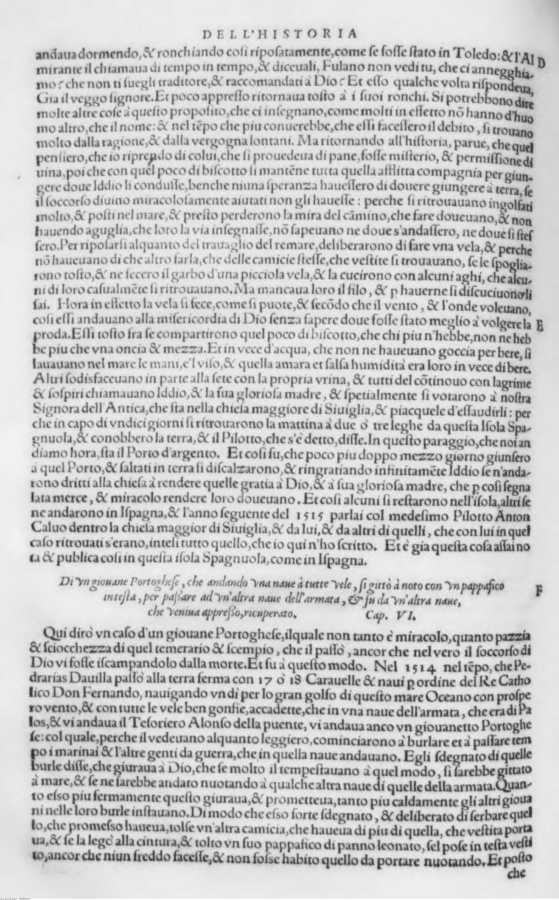 DELL'HISTORIA
andaua dormendo, & ronchiando cosi riposatamente, come se fosse stato in Toledo: & l'Al
D
mirante il chiamaua di tempo in tempo, & diceuali, Fulano non vedi tu, che ci anneghia-
mo? che non ti suegli traditore, & raccomandati à Dio? Et esso qualche volta rispondeua,
Gia il veggo signore. Et poco appresso ritornaua tosto à i suoi ronchi. Si potrebbono dire
molte altre cose à questo proposito, che ci insegnano, come molti in effetto nõ hanno d'huo
mo altro, che il nome: & nel tẽpo che piu conuerrebbe, che essi facessero il debito, si trouano
molto dalla ragione, & dalla vergogna lontani. Ma ritornando all'historia, parue, che quel
pensiero, che io riprendo di colui, che si prouedeua di pane, fosse misterio, & permissione di
uina, poi che con quel poco di biscotto si mantẽne tutta quella afflitta compagnia per giun-
gere doue Iddio li condusse, benche niuna speranza hauessero di douere giungere à terra, se
il soccorso diuino miracolosamente aiutati non gli hauesse: perche si ritrouauano ingolfati
molto, & posti nel mare, & presto perderono la mira del cãmino, che fare doueuano, & non
hauendo aguglia, che loro la via insegnasse, nõ sapeuano ne doue s'andassero, ne doue si stes
sero. Per riposarsi alquanto del trauaglio del remare, deliberarono di fare vna vela, & perche
nõ haueuano di che altro farla, che delle camicie stesse, che vestite si trouauano, se le spoglia-
rono tosto, & ne fecero il garbo d'vna picciola vela, & la cucirono con alcuni aghi, che alcu-
ni di loro casualmẽte si ritrouauano. Ma mancaua loro il filo, & p hauerne si discuciuono li
sai. Hora in effetto la vela si fece, come si puote, & secõdo che il vento, & l'onde voleuano,
cosi essi andauano alla misericordia di Dio senza sapere doue fosse stato meglio à volgere la
E
proda. Essi tosto fra se compartirono quel poco di biscotto, che chi piu n'hebbe, non ne heb
be piu che vna oncia & mezza. Et in vece d'acqua, che non ne haueuano goccia per bere, si
lauauano nel mare le mani, e'l viso, & quella amara et salsa humidità era loro in vece di bere.
Altri sodisfaceuano in parte alla sete con la propria vrina, & tutti del cõtinouo con lagrime
& sospiri chiamauano Iddio, & la sua gloriosa madre, & spetialmente si votarono à nostra
Signora dell'Antica, che sta nella chiesa maggiore di Siuiglia, & piacquele d'essaudirli: per
che in capo di vndici giorni si ritrouarono la mattina à due ò tre leghe da questa Isola Spa-
gnuola, & conobbero la terra, & il Pilotto, che s'è detto, disse. In questo paraggio, che noi an
diamo hora, sta il Porto d'argento. Et cosi fu, che poco piu doppo mezzo giorno giunsero
à quel Porto, & saltati in terra si discalzarono, & ringratiando infinitamẽte Iddio se n'anda-
rono dritti alla chiesa à rendere quelle gratia à Dio, & à sua gloriosa madre, che p cosi segna
lata merce, & miracolo rendere loro doueuano. Et cosi alcuni si restarono nell'isola, altri se
ne andarono in Ispagna, & l'anno seguente del 1515 parlai col medesimo Pilotto Anton
Caluo dentro la chiesa maggior di Siuiglia, & da lui, & da altri di quelli, che con lui in quel
caso ritrouati s'erano, intesi tutto quello, che io qui n'ho scritto. Et è gia questa cosa assai no
ta & publica cosi in questa isola Spagnuola, come in Ispagna.
Di vn giouane Portoghese, che andando vna naue à tutte vele, si gittò à noto con vn pappafico
F
in testa, per passare ad vn'altra naue dell'armata, & fu da vn'altra naue,
che veniua appresso, ricuperato. Cap. VI.
Qui dirò vn caso d'un giouane Portoghese, ilquale non tanto è miracolo, quanto pazzia
& sciocchezza di quel temerario & scempio, che il passò, ancor che nel vero il soccorso di
Dio vi fosse iscampandolo dalla morte. Et fu à questo modo. Nel 1514 nel tẽpo, che Pe-
drarias Dauilla passò alla terra ferma con 17 ò 18 Carauelle & naui p ordine del Re Catho
lico Don Fernando, nauigando vn dì per lo gran golfo di questo mare Oceano con prospe
ro vento, & con tutte le vele ben gonfie, accadette, che in vna naue dell'armata, che era di Pa
los, & vi andaua il Tesoriero Alonso della puente, vi andaua anco vn giouanetto Portoghe
se: col quale, perche il vedeuano alquanto leggiero, cominciarono à burlare et à passare tem
po i marinai & l'altre genti da guerra, che in quella naue andauano. Egli sdegnato di quelle
burle disse, che giuraua à Dio, che se molto il tempestauano à quel modo, si sarebbe gittato
à mare, & se ne sarebbe andato nuotando à qualche altra naue di quelle della armata. Quan-
to esso piu fermamente questo giuraua, & prometteua, tanto piu caldamente gli altri gioua
ni nelle loro burle instauano. Di modo che esso forte sdegnato, & deliberato di serbare quel
lo, che promesso haueua, tolse vn'altra camicia, che haueua di piu di quella, che vestita porta
ua, & se la legò alla cintura, & tolto vn suo pappafico di panno leonato, sel pose in testa vesti
to, ancor che niun freddo facesse, & non fosse habito quello da portare nuotando. Et posto
che